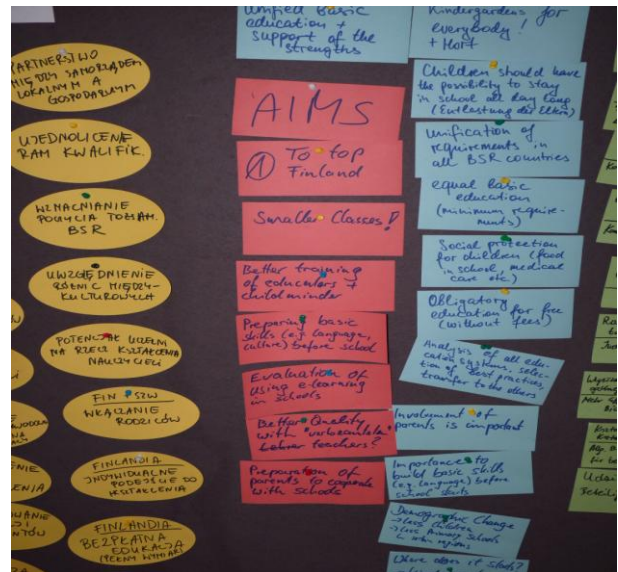 PARTNERSTWO
MIĘDZY SAMORZĄDEM
LOKALNYM A
GOSPODARCZYM
UJEDNOLICENIE
RAM KWALIFIK.
WZMACNIANIE
POCZUCIA TOŻSAM.
BSR
UWZGLĘDNIENIE
RÓŻNIC MIĘDZY-
KULTUROWYCH
POTENCJAŁ UCZELNI
NA RZECZ KSZTAŁCENIA
NAUCZYCIELI
FIN
WŁĄCZANIE
RODZICÓW
FINLANDIA
INDYWIDUALNE
PODEJŚCIE DO
KSZTAŁCENIA
FINLANDIA
BEZPŁATNA
EDUKACJA
Unified Basic
education +
support of the
strengths
AIMS
1 To top
Finland
Smaller Classes!
Better training
of educators +
childminder
Preparing basic
skills (e.g. language,
culture) before school
Evaluation of
using e-learning
in schools
Better Quality
with
teachers?
Preparation of
parents to cooperate
with schools
Kindergardens for
everybody!
+ Hort
Children should have
the possibility to stay
in school all day long
(Entlastung der Eltern)
Unification of
requirements in
all BSR countries
equal basic
education
(minimum require-
ments)
Social protection
for children (food
in school, medical
care etc.)
Obligatory
education for free
(without fees)
Analysis of all edu-
cation systems, selec-
tion of best practices,
transfer to the others
Involvment of
parents is important
Importance to
build basic skills
(e.g. language) before
school starts
Demographic Change
→ less children
→ less Primary schools
in regions
Where does it start?